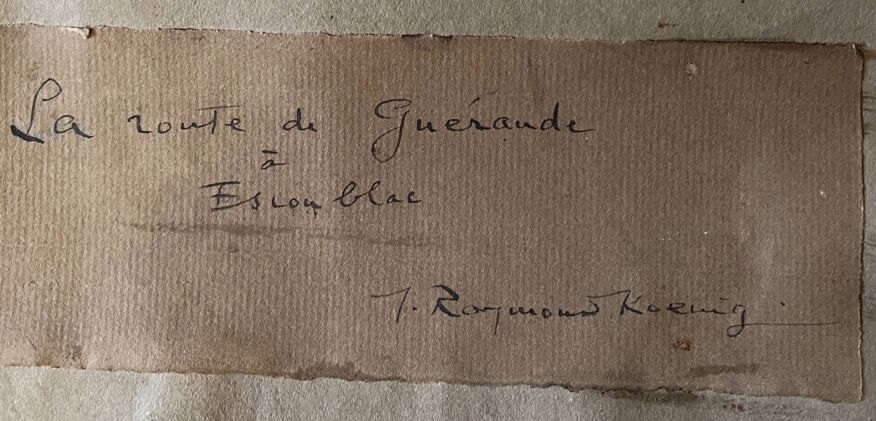 La route de Guérande
à
Escoublac
J. Raymond Koenig